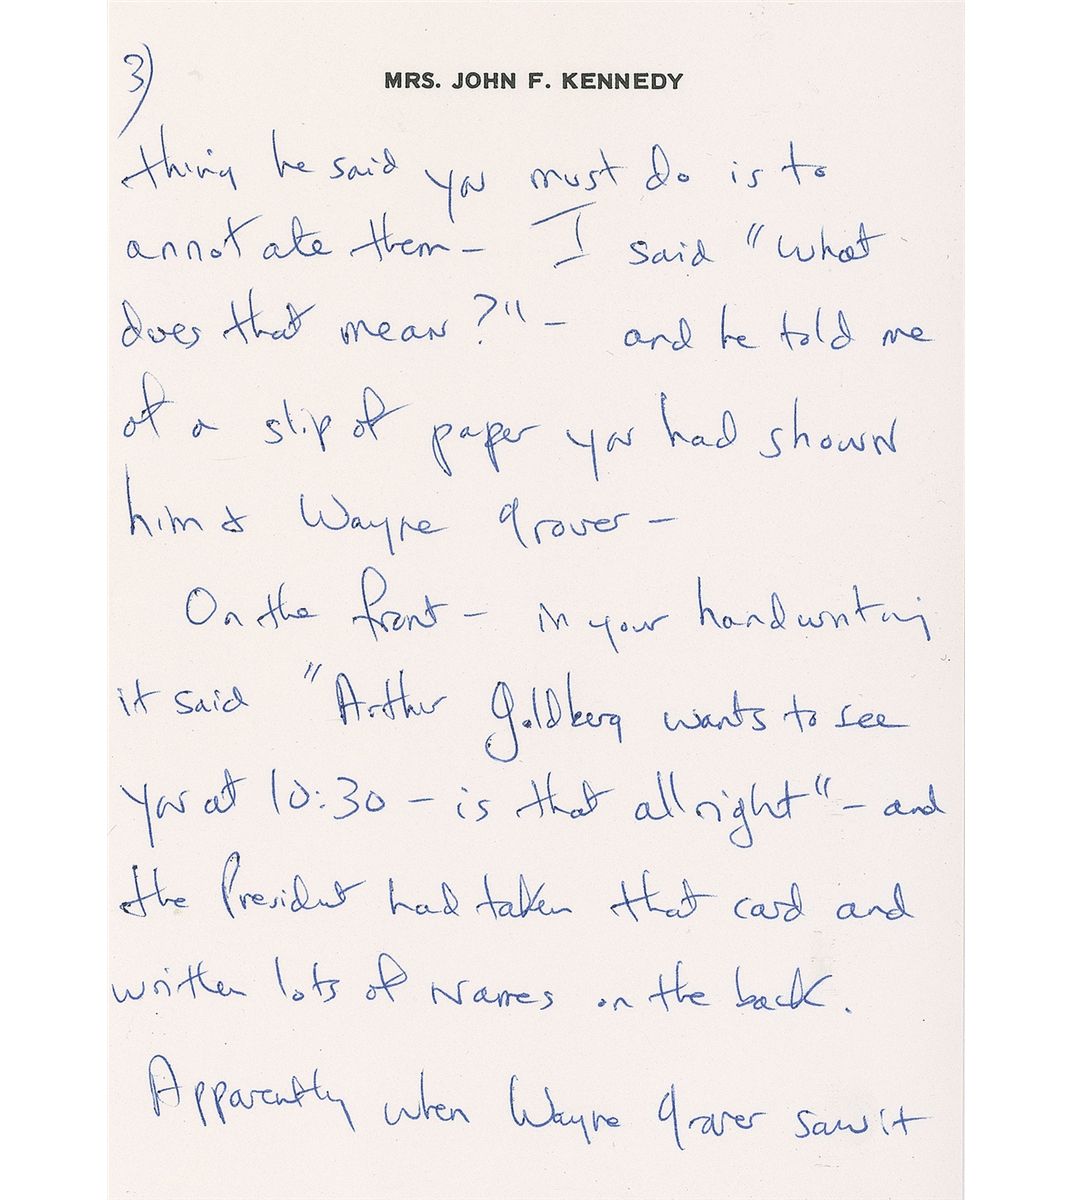 3)
MRS. JOHN F. KENNEDY
thing he said you must do is to
annotate them – I said "What
does that mean?" – and he told me
of a slip of paper you had shown
him & Wayne Grover –
On the front – in your handwriting
it said "Arthur Goldberg wants to see
you at 10:30 – is that all right" – and
the President had taken that card and
written lots of names on the back.
Apparently when Wayne Grover saw it